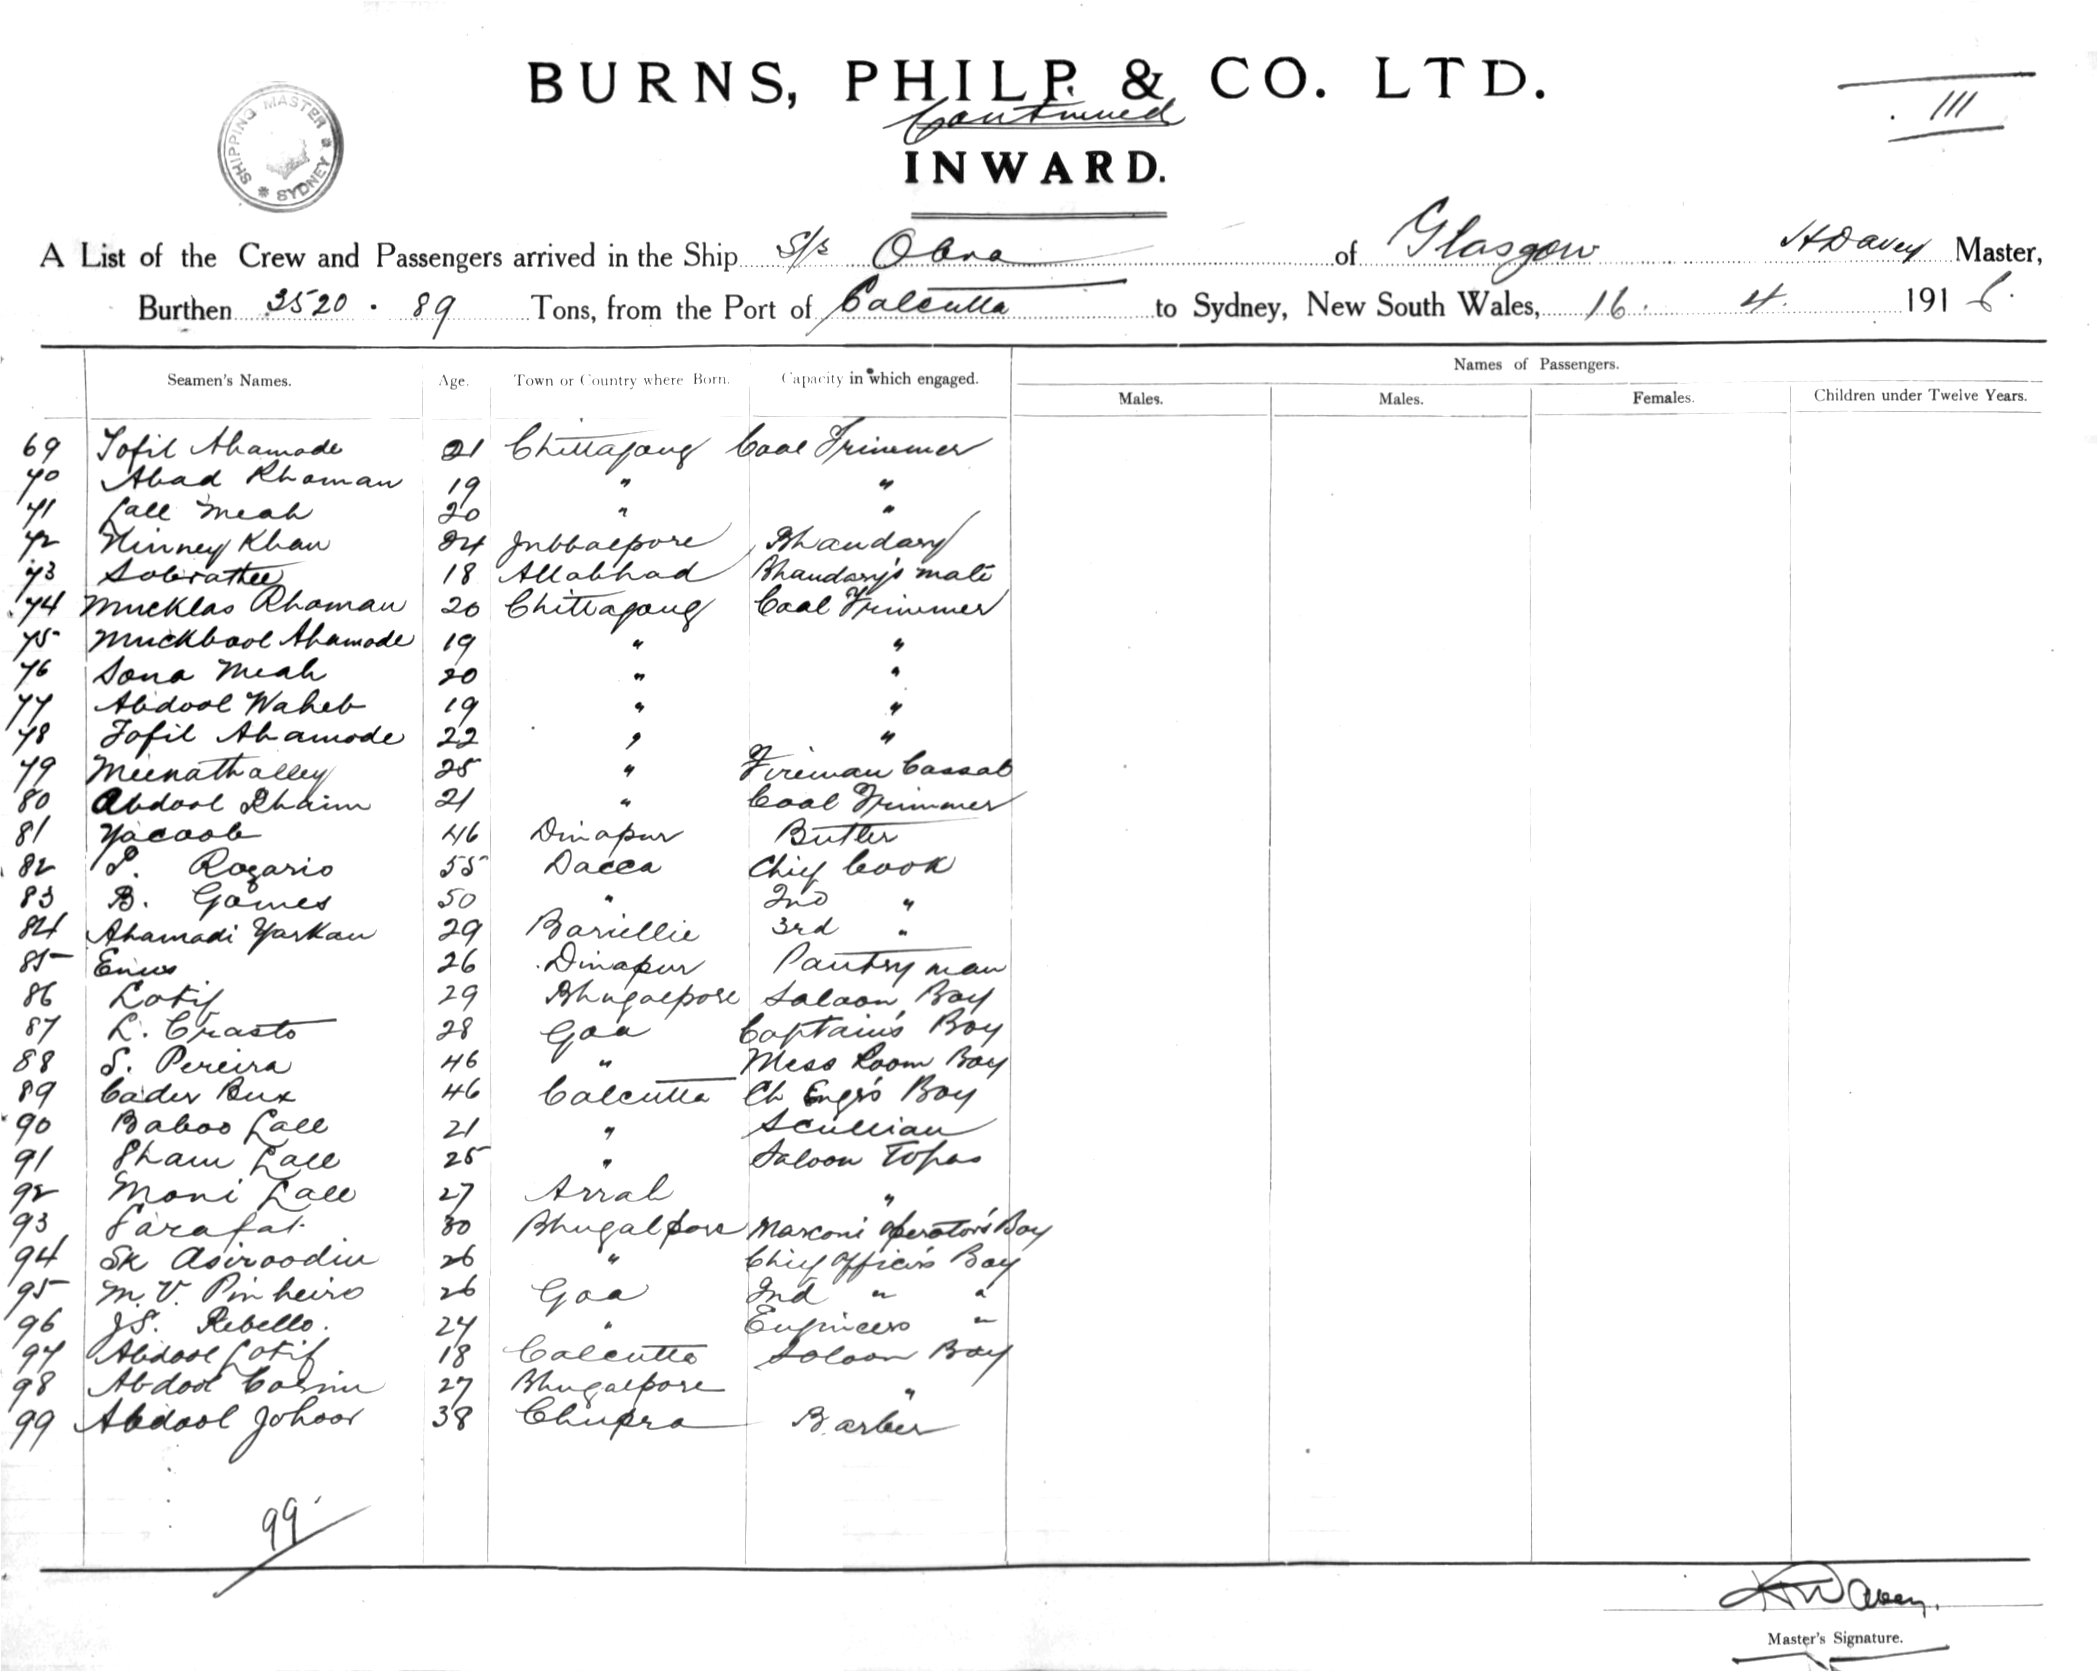 BURNS, PHILP & CO. LTD.
Continued
III
INWARD.
SHIPPING MASTER * SYDNEY *
A List of the Crew and Passengers arrived in the Ship S/s Obra of Glasgow H Davey Master,
Burthen 3520 . 89 Tons, from the Port of Calcutta to Sydney, New South Wales, 16. 4. 1916.
Names of Passengers.
Seamen's Names. Age. Town or Country where Born. Capacity in which engaged. Males. Males. Females. Children under Twelve Years.
69 Tofil Ahamode 21 Chittagong Coal Trimmer
70 Abad Rhoman 19 " "
71 Lall Meah 20 " "
72 Hinney Khan 24 Jubbalpore Bhandary
73 Sobrathee 18 Allabhad Bhandary's mate
74 Mucklas Rhoman 20 Chittagong Coal Trimmer
75 Muckbool Ahamode 19 " "
76 Sona Meah 20 " "
77 Abdool Waheb 19 " "
78 Tofil Ahamode 22 " "
79 Meenathalley 25 " Fireman Cassab
80 Abdool Rhaim 21 " Coal Trimmer
81 Yacoob 46 Dinapur Butler
82 P. Rozario 55 Dacca Chief Cook
83 B. Gomes 50 " 2nd "
84 Ahamadi Yarkan 29 Bariellie 3rd "
85 Enus 26 Dinapur Pantryman
86 Lotif 29 Bhugalpore Saloon Boy
87 L. Crasto 28 Goa Captain's Boy
88 S. Pereira 46 " Mess Room Boy
89 Cader Bux 46 Calcutta Ch Engr's Boy
90 Baboo Lall 21 " Scullian
91 Sham Lall 25 " Saloon Topas
92 Moni Lall 27 Arrah "
93 Sarafat 30 Bhugalpore Marconi Operator's Boy
94 Sk Asiroodin 26 " Chief Officer's Boy
95 M. V. Pinheiro 26 Goa 2nd " "
96 J.S. Rebello. 24 " Engineers "
97 Abdool Lotif 18 Calcutta Saloon Boy
98 Abdool Cassim 27 Bhugalpore "
99 Abdool Johoor 38 Chupra Barber
99
H Davey.
Master's Signature.